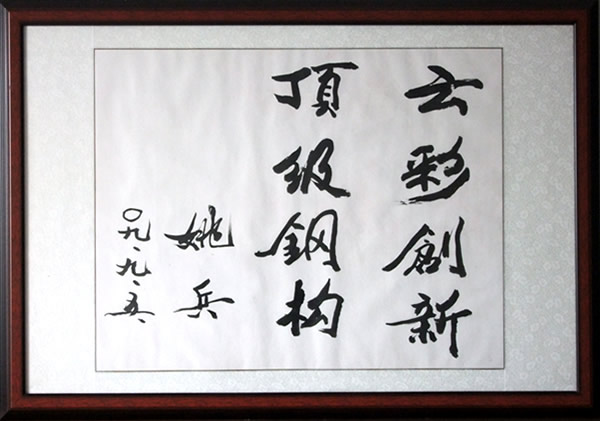 云彩創新
頂级鋼构
姚兵
〇九·九·五